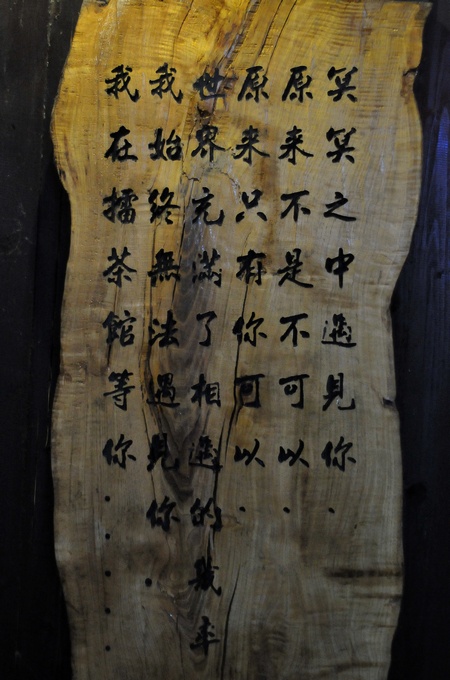 冥冥之中遇見你.
原来不是不可以.
原来只有你可以.
世界充满了相遇的幾率
我始終無法遇見你..
我在擂茶館等你......